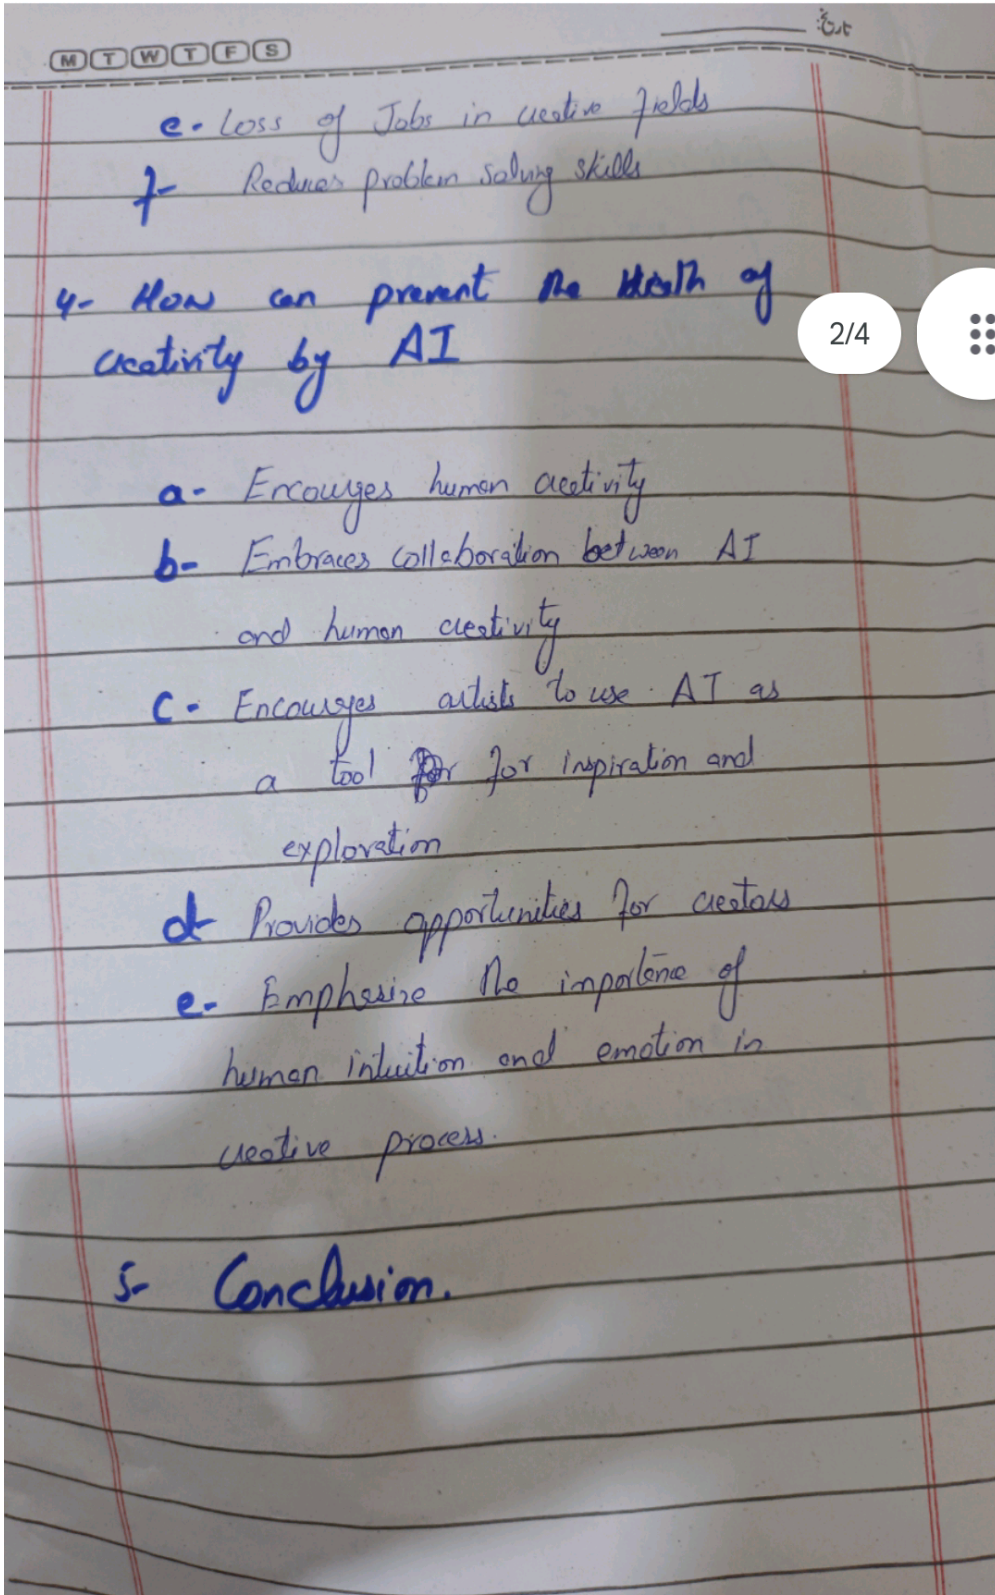 M T W T F S
تاریخ:
e- Loss of Jobs in creative fields
f- Reduces problem solving skills
4- How can prevent the death of
creativity by AI
2/4
a- Encourges human creativity
b- Embraces collaboration between AI
and human creativity
c- Encourges artists to use AI as
a tool for inspiration and
exploration
d- Provides opportunities for creators
e- Emphasize the importance of
human intuition and emotion in
creative process.
5- Conclusion.